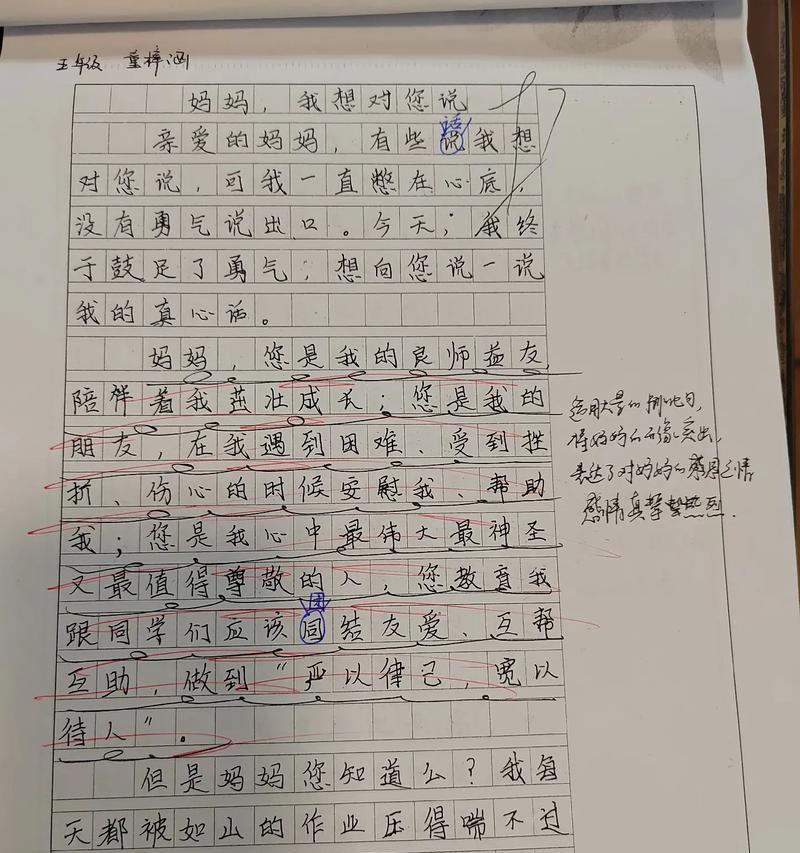 五年级 董梓涵
妈妈，我想对您说
亲爱的妈妈，有些说我想
话
对您说，可我一直憋在心底，
没有勇气说出口。今天，我终
于鼓足了勇气，想向您说一说
我的真心话。
妈妈，您是我的良师益友，
陪伴着我茁壮成长；您是我的
朋友，在我遇到困难、受到挫
折、伤心的时候安慰我、帮助
我；您是我心中最伟大最神圣
又最值得尊敬的人，您教育我
团
跟同学们应该同结友爱、互帮
互助，做到“严以律己，宽以
待人”。
但是妈妈您知道么？我每
天都被如山的作业压得喘不过
运用大量的排比句，
将妈妈的形象突出，
表达了对妈妈的感恩之情
感情真挚热烈.